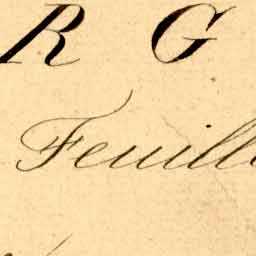 R G
Feuill